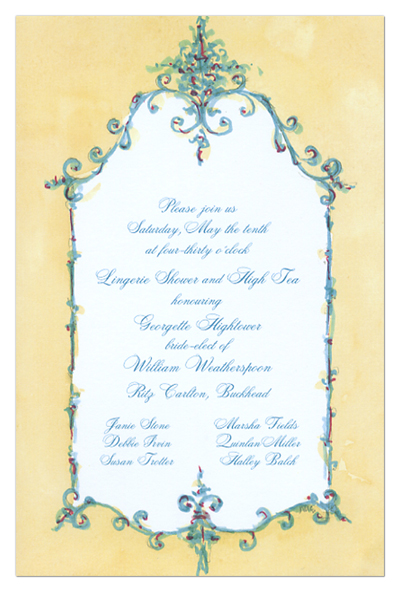 Please join us
Saturday, May the tenth
at four-thirty o'clock
Lingerie Shower and High Tea
honouring
Georgette Hightower
bride-elect of
William Weatherspoon
Ritz Carlton, Buckhead
Janie Stone Marsha Fields
Debbie Irvin Quinlan Miller
Susan Trotter Halley Balik